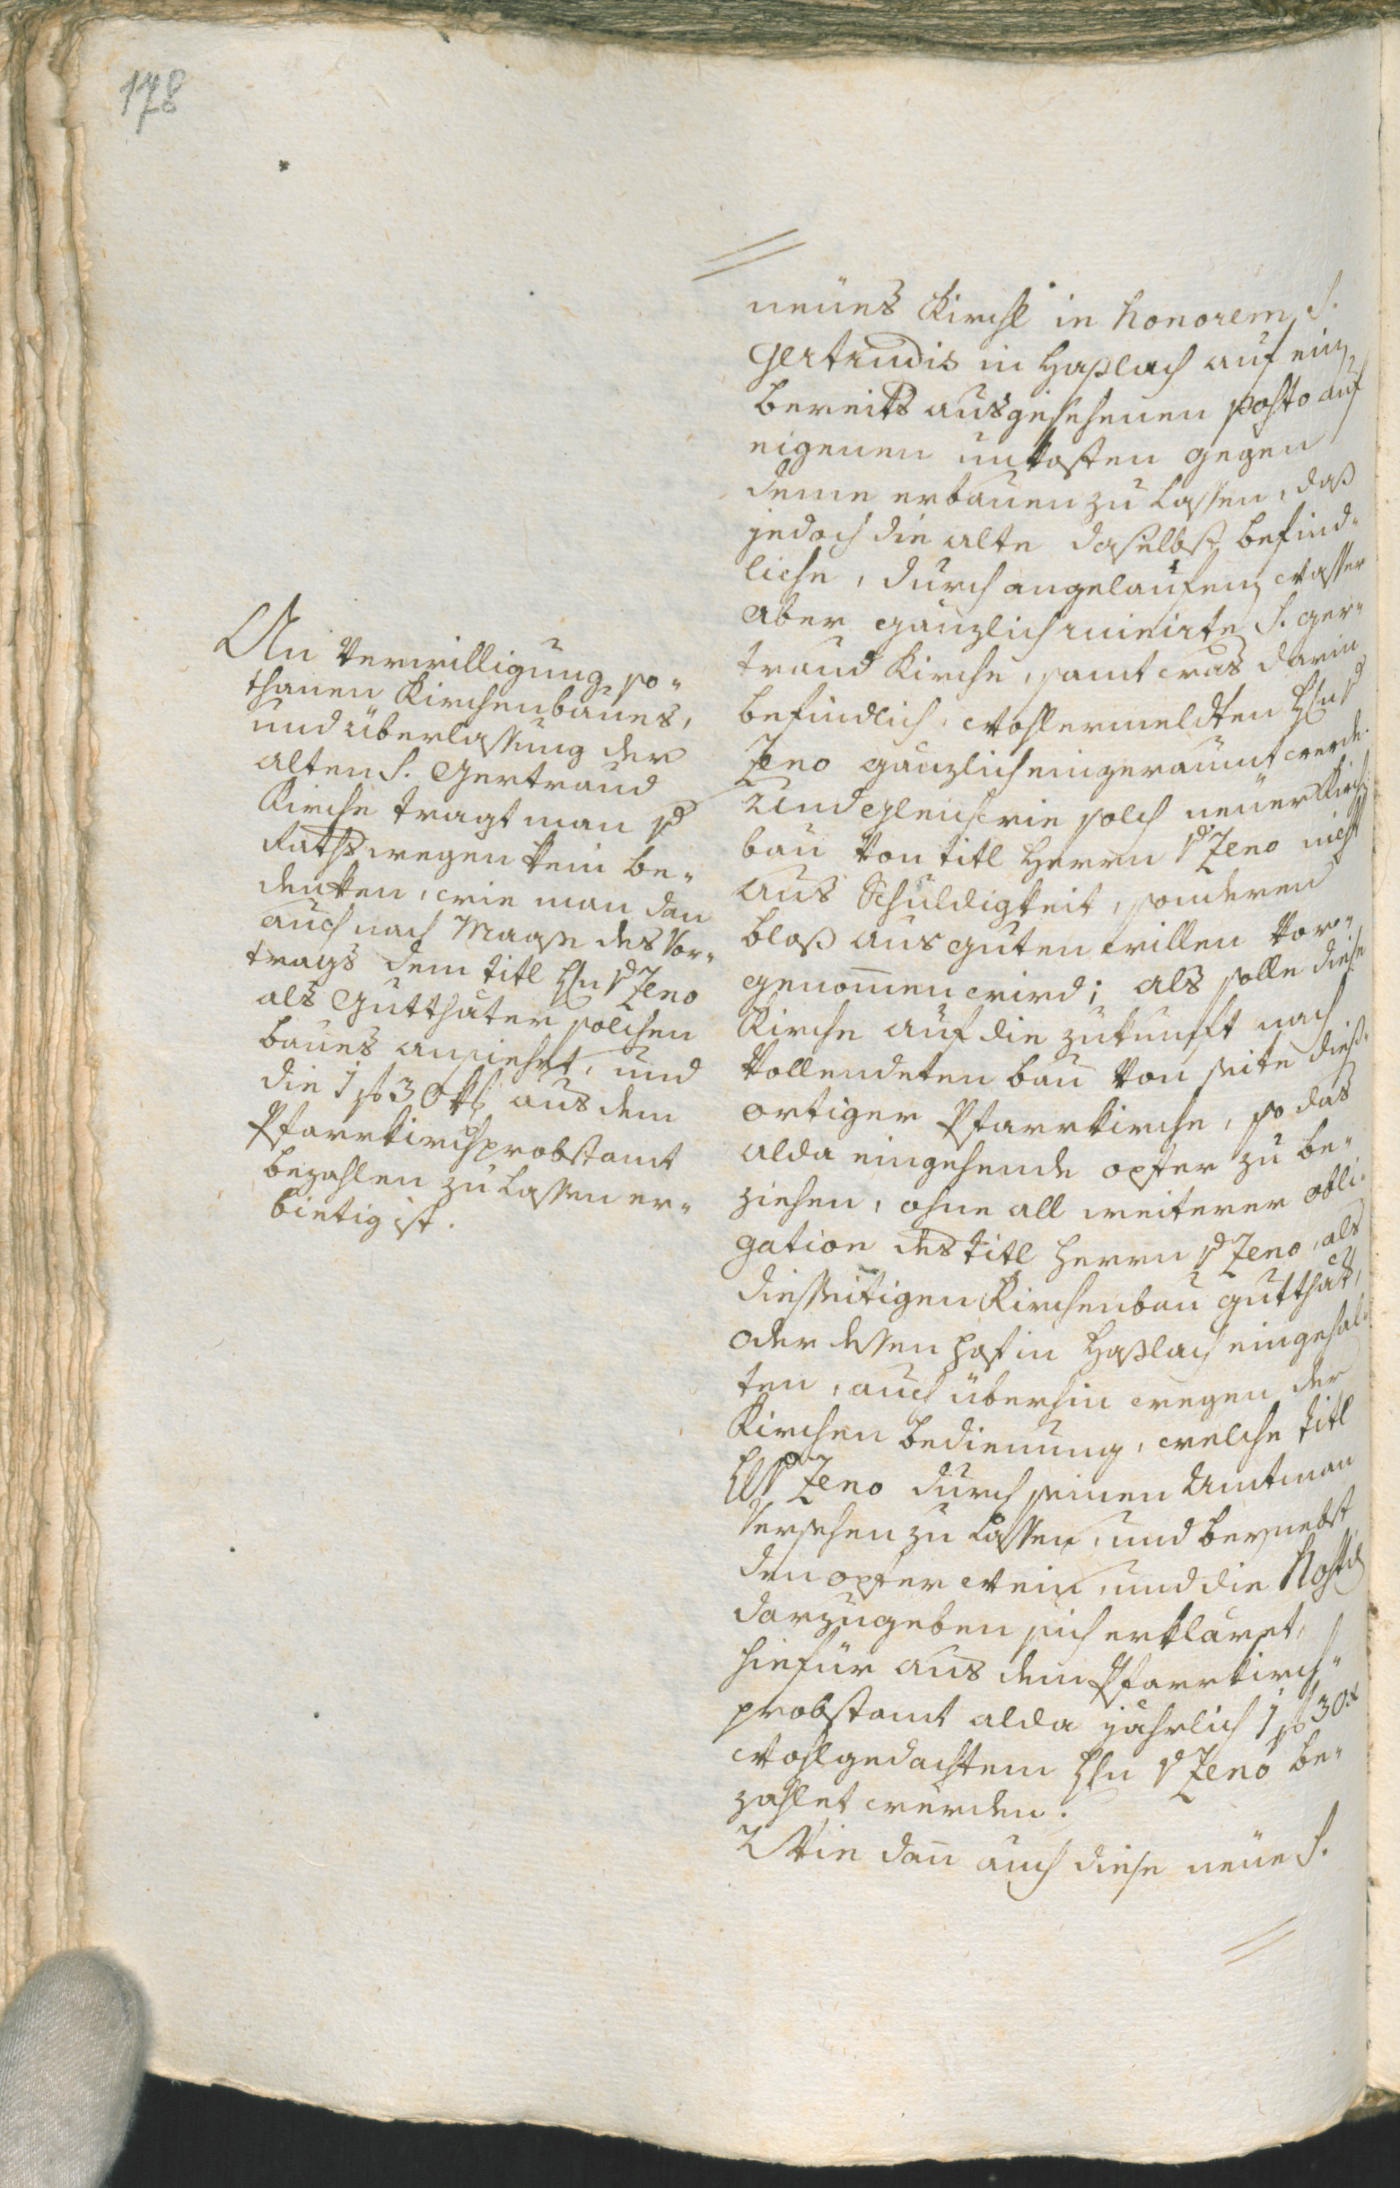 178
An Verwilligung so„
thanen Kirchenbaues,
und überlassung der
alten S. Gertraud
Kirche tragt man
Raths wegen kein be„
denken, wie man dan
auch nach Maase des Vor„
trags dem titl Hrn v Zeno
als Gutthäter solchen
baues ansiehet, und
die 1 f 30 kr aus dem
Pfarrkirchprobstamt
bezahlen zu lassen er„
bietig ist.
neues Kirchl in honorem S.
Gertrudis in Haslach auf ein
bereits ausgesehenen posto auf
eigenen unkosten gegen
deme erbauen zu lassen, daß
jedoch die alte daselbst befind„
liche, durch angelaufen wasser
aber gänzlich ruinirte S. Ger„
traud Kirche, samt was darin
befindlich, wohlermeldten Hrn v
Zeno gänzlich eingeraumt werde.
Und gleichwie solch neuer Kirch
bau von titl Herrn v Zeno nicht
aus Schuldigkeit, sonderen
blos aus guten willen vor„
genommen wird; als solle diese
Kirche auf die zukunft nach
vollendeten bau von seite dieß„
ortiger Pfarrkirche, so das
alda eingehende opfer zu be„
ziehen, ohne all weiterer obli„
gation des titl Herrn v Zeno, als
diesseitigen Kirchenbau gutthät,
oder dessen hof in Haslach eingehal„
ten, auch überhin wegen der
Kirchen bedienung, welche titl
H v Zeno durch seinen Amtman
versehen zu lassen, und bernebst
den opfer wein, und die Host
darzugeben sich erkläret,
hiefür aus dem Pfarrkirch„
probstamt alda jährlich 1 f 30 x
wohlgedachtem Hrn v Zeno be„
zahlet werden.
Wie dan auch diese neue S.